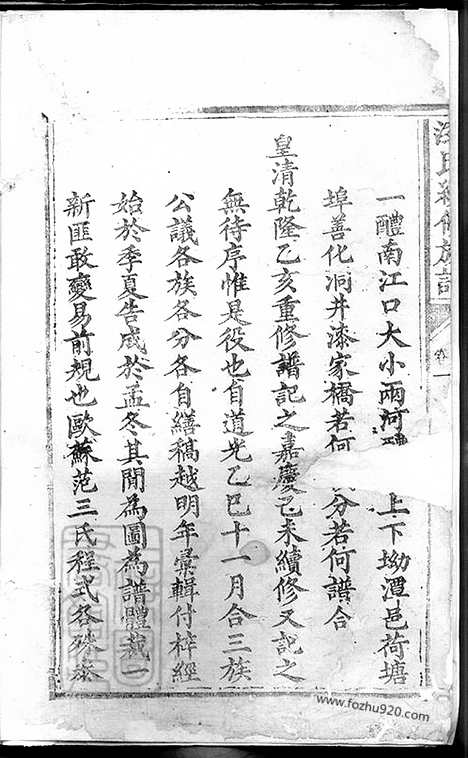 氏續修族譜
卷一
一醴南江口大小兩河 上下坳潭邑荷塘
埠善化洞井漆家橋若何 分若何譜合
皇清乾隆乙亥重修譜記之嘉慶己未續修又記之
無待序惟是役也自道光乙巳十一月合三族
公議各族各分各自繕稿越明年彙輯付梓經
始於季夏告成於孟冬其閒為圖為譜體裁一
新匪敢變易前規也歐蘇范三氏程式各殊
www.fozhu920.com